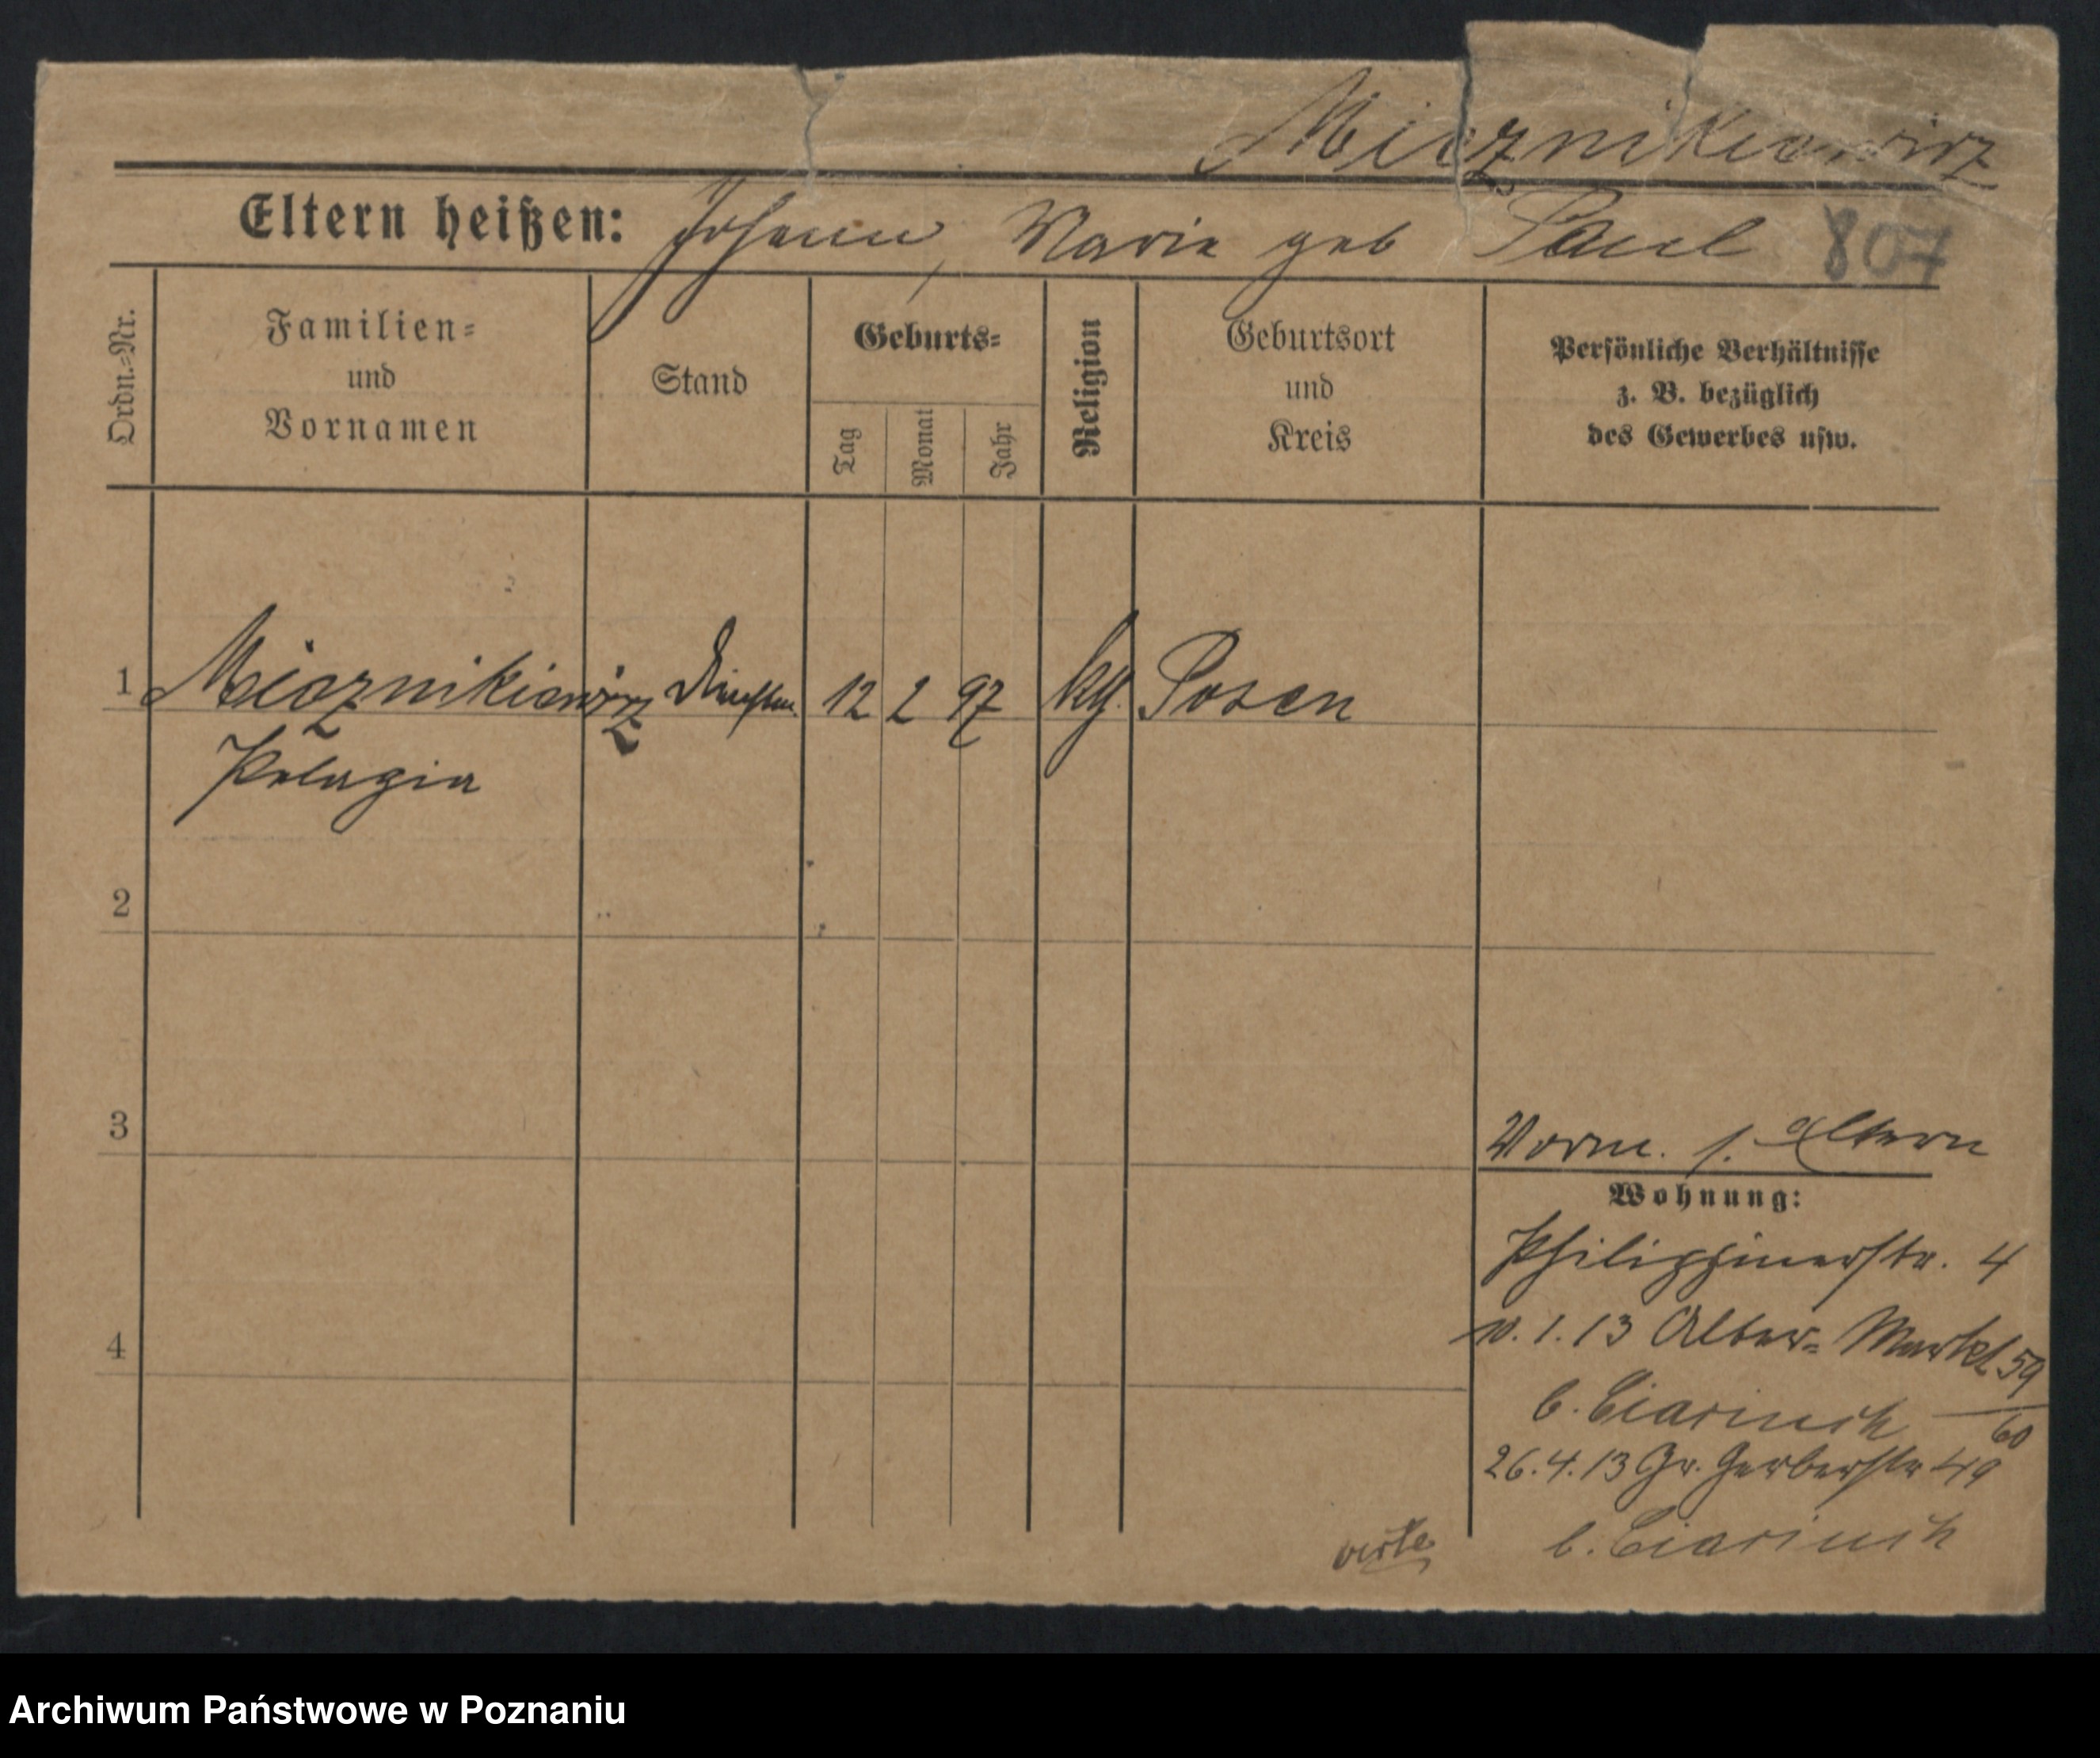 Miecznikiewicz
Eltern heißen: Johann, Marie geb Paul 807
Ordn.=Nr.
Familien=
und
Vornamen
Stand
Geburts=
Tag
Monat
Jahr
Religion
Geburtsort
und
Kreis
Persönliche Verhältnisse
z. B. bezüglich
des Gewerbes usw.
1 Miecznikiewicz 12 2 97 Posen
Pelagia
2
3
Vorm. s. Eltern
Wohnung:
Philippinerstr. 4
10.1.13 Alter= Markt 59
60
4
26.4.13 Gr. Gerberstr 49
Archiwum Państwowe w Poznaniu